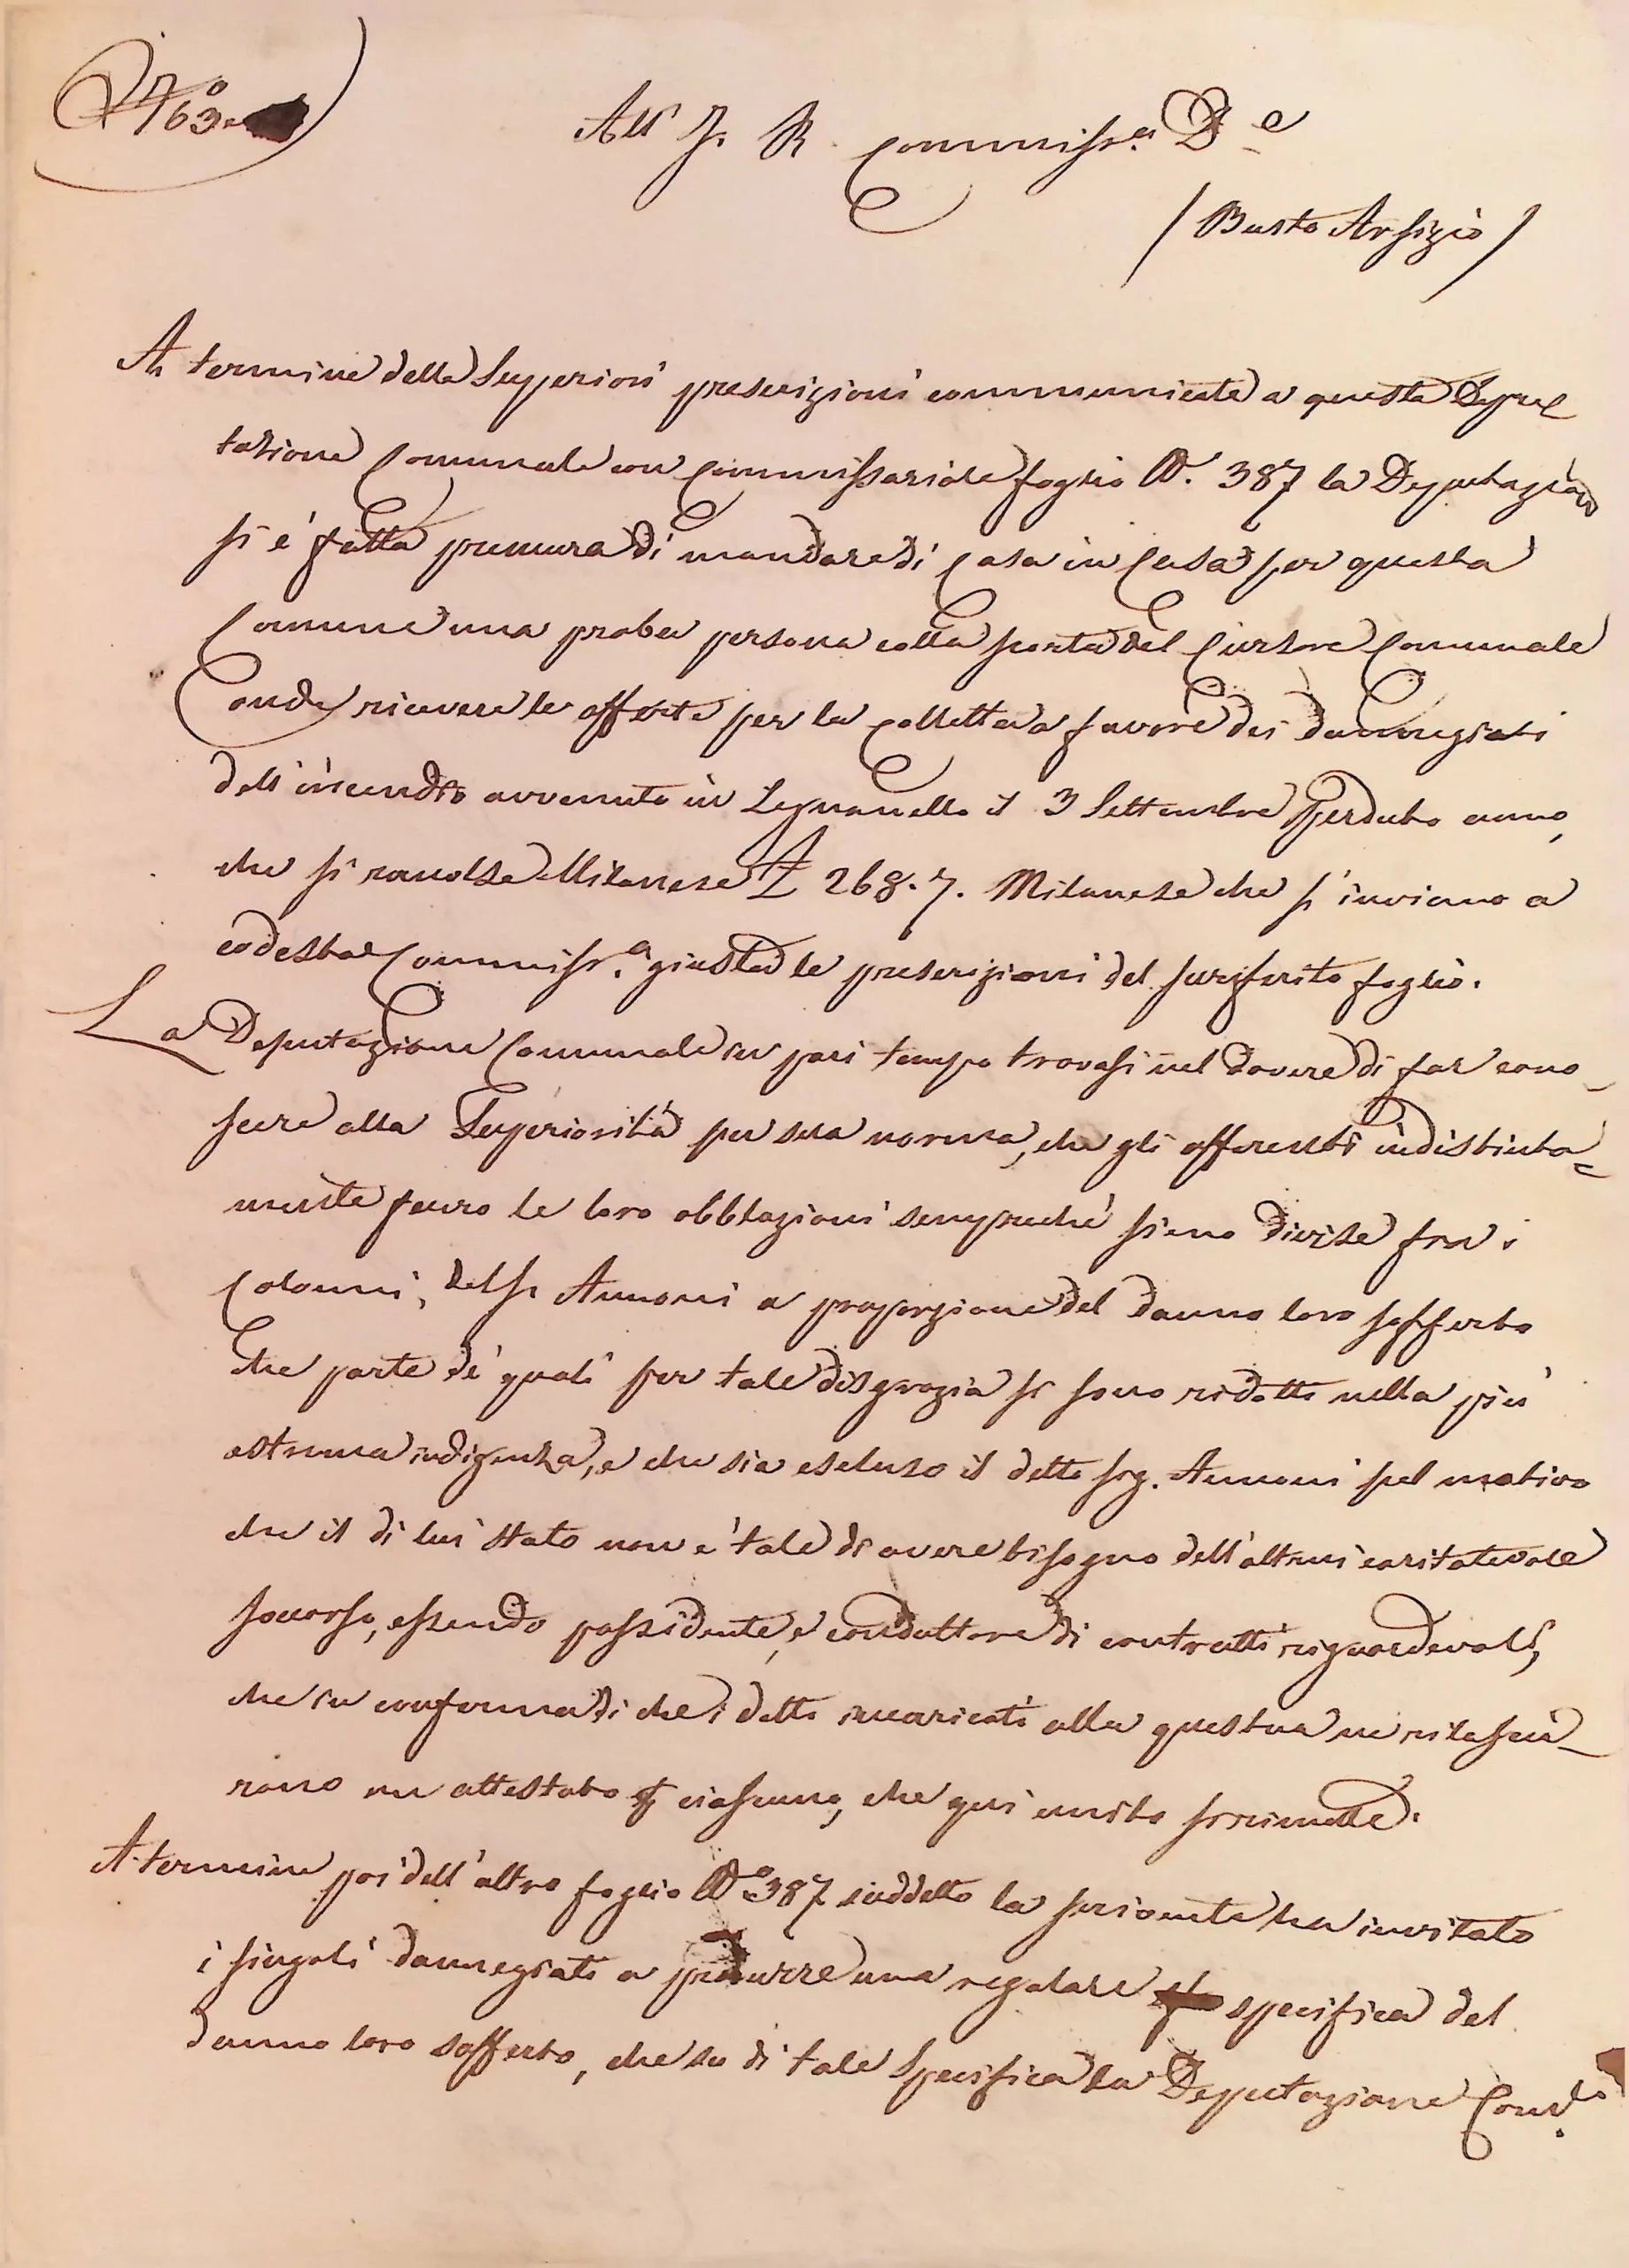 N.° 163
All' I. R. Commiss.a D.e
/ Busto Arsizio /
A termine delle Superiori prescrizioni communicate a questa Depu=
tazione Comunale con Commissariale foglio N.° 387 la Deputazione
si è fatta premura di mandare di Casa in Casa per questa
Comune una proba persona colla scorta del Cursore Comunale
onde ricevere le offerte per la Colletta a favore dei dannegiati
dell'incendio avvenuto in Legnanello il 3 Settembre perduto anno,
che si racolse Milanese £ 268.7. Milanese che s'inviano a
codesta Commiss.a giusta le prescrizioni del surriferito foglio.
La Deputazione Comunale in pari tempo trovasi nel dovere di far cono-
scere alla Superiorità per sua norma, che gli offerenti indistinta=
mente fecero le loro obblazioni sempreché sieno divise fra i
Coloni, del Sr Annoni a proporzione del danno loro sofferto
che parte de' quali per tale disgrazia si sono ridotti nella più
estrema indigenza, e che sia escluso il detto sig. Annoni pel motivo
che il di lui stato non è tale di avere bisogno dell'altrui caritatevole
soccorso, essendo possidente, e conduttore di contratti riguardevoli,
che in conferma di che i detti incaricati alla questua ne rilascia-
rono un attestato per ciascuno, che qui unito si rimette.
A termine poi dell'altro foglio N.° 387 suddetto la scrivente ha invitato
i singoli dannegiati a produrre una regolare specifica del
danno loro sofferto, che su di tale specifica la Deputazione Com.le